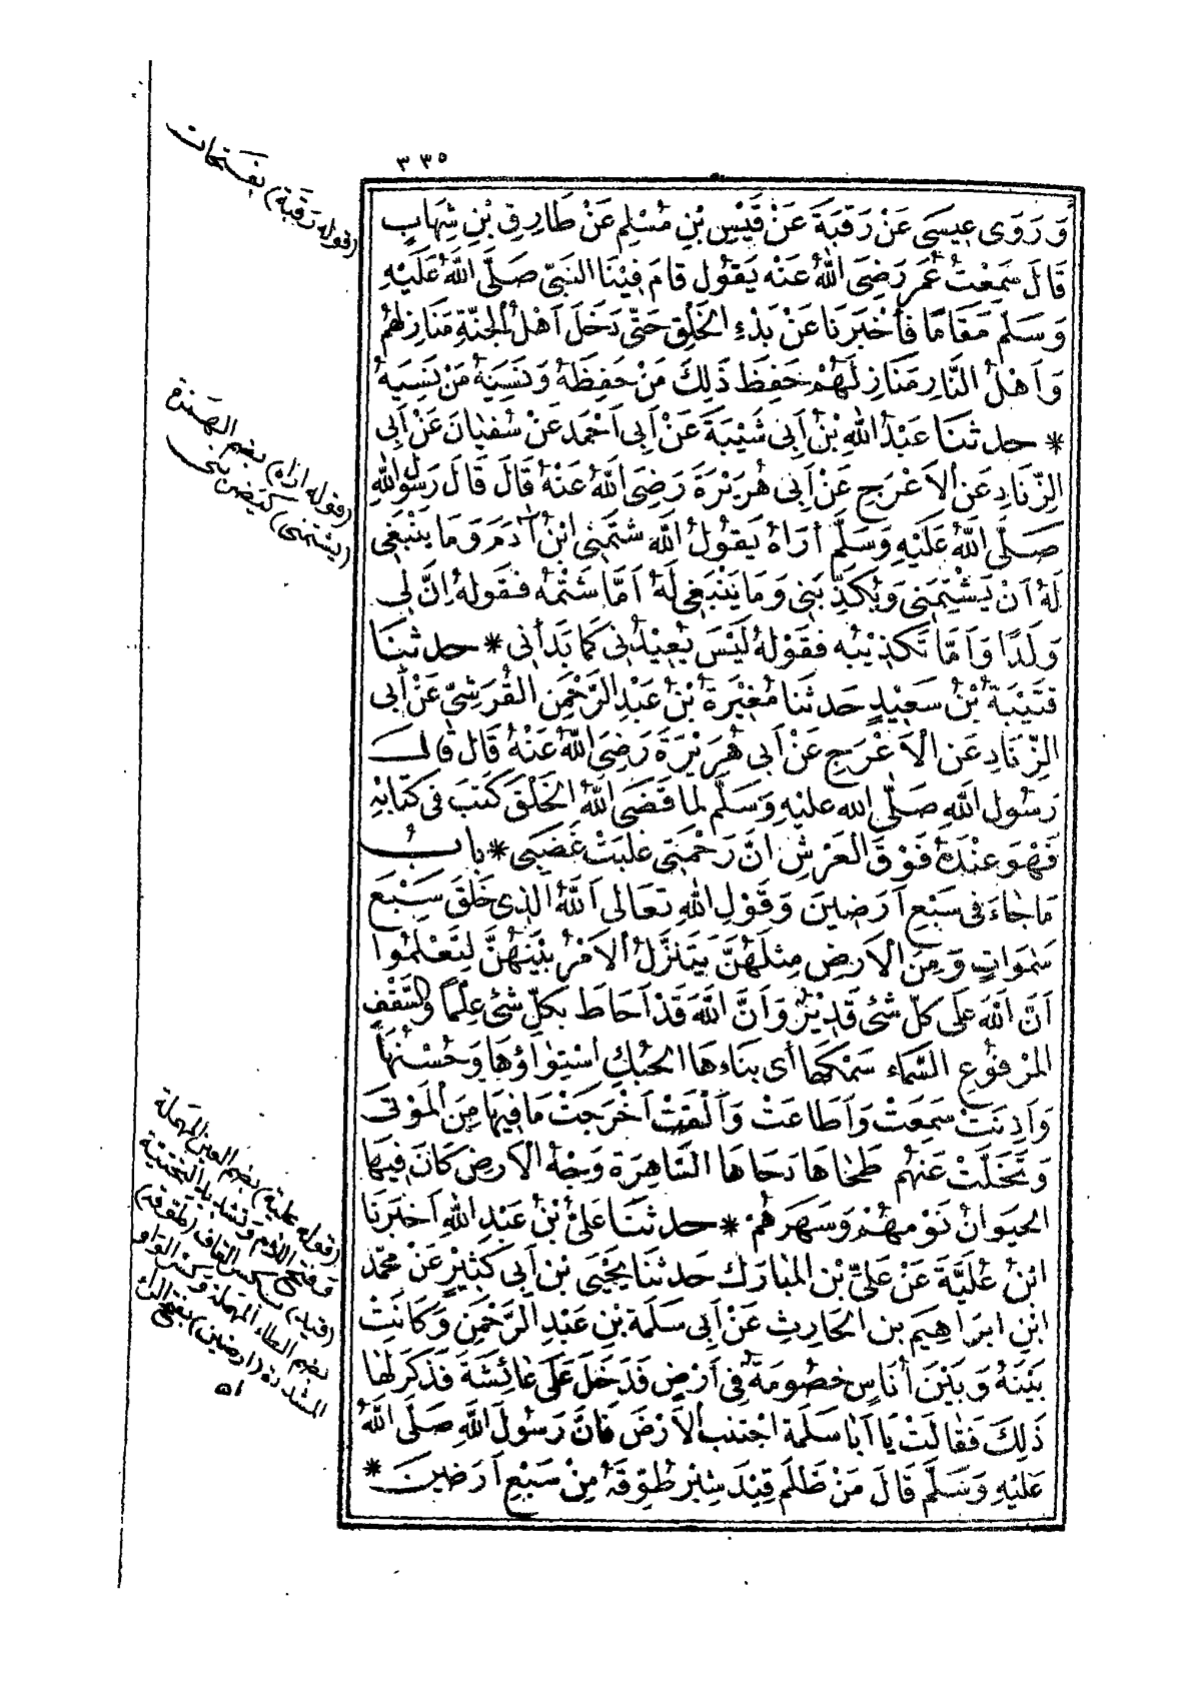 ٣٣٥
وَرَوَى عِيسَى عَنْ رَقَبَةَ عَنْ قَيْسِ بْنِ مُسْلِمٍ عَنْ طَارِقِ بْنِ شِهَابٍ
قَالَ سَمِعْتُ عُمَرَ رَضِيَ اللهُ عَنْه يَقُولُ قَامَ فِيْنَا النَّبِيُّ صَلَّى اللهُ عَلَيْهِ
وَسَلَّمَ مَقَامًا فَأَخْبَرَنَا عَنْ بَدْءِ الْخَلْقِ حَتَّى دَخَلَ اَهْلُ الْجَنَّةِ مَنَازِلَهُمْ
وَاَهْلُ النَّارِ مَنَازِلَهُمْ حَفِظَ ذَلِكَ مَنْ حَفِظَهُ وَنَسِيَهُ مَنْ نَسِيَهُ
* حدثنا عَبْدُ اللهِ بْنُ اَبِي شَيْبَةَ عَنْ اَبِي اَحْمَدَ عَنْ سُفْيَانَ عَنْ اَبِي
الزِّنَادِ عَنِ الْاَعْرَجِ عَنْ اَبِي هُرَيْرَةَ رَضِيَ اللهُ عَنْهُ قَالَ قَالَ رَسُولُ اللهِ
صَلَّى اللهُ عَلَيْهِ وَسَلَّمَ أُرَاهُ يَقُولُ اللهُ شَتَمَنِي ابْنُ آدَمَ وَمَا يَنْبَغِي
لَهُ اَنْ يَشْتِمَنِي وَيُكَذِّبُنِي وَمَا يَنْبَغِي لَهُ اَمَّا شَتْمُهُ فَقَوْلُهُ اِنَّ لِي
وَلَدًا وَاَمَّا تَكْذِيْبُه فَقَوْلُهُ لَيْسَ يُعِيْدُنِي كَمَا بَدَأَنِي * حدثنا
قُتَيْبَةُ بْنُ سَعِيْدٍ حَدثنا مُغِيْرَةُ بْنُ عَبْدِ الرَّحْمٰنِ الْقُرَشِيُّ عَنْ اَبِي
الزِّنَادِ عَنِ الْاَعْرَجِ عَنْ اَبِي هُرَيْرَةَ رَضِيَ اللهُ عَنْهُ قَالَ قَالَ
رَسُولُ اللهِ صَلَّى الله عليهِ وَسَلَّمَ لما قَضَى اللهُ الْخَلْقَ كَتَبَ فِي كِتَابِهِ
فَهُوَ عِنْدَهُ فَوْقَ الْعَرْشِ اِنَّ رَحْمَتِي غَلَبَتْ غَضَبِي * بابُ
مَا جَاءَ فِي سَبْعِ اَرَضِينَ وَقَوْلِ اللهِ تَعَالَى اَللهُ الَّذِي خَلَقَ سَبْعَ
سَمٰوَاتٍ وَمِنَ الْاَرْضِ مِثْلَهُنَّ يَتَنَزَّلُ الْاَمْرُ بَيْنَهُنَّ لِتَعْلَمُوا
اَنَّ اللهَ عَلَى كُلِّ شَيْءٍ قَدِيْرٌ وَاَنَّ اللهَ قَدْ اَحَاطَ بِكُلِّ شَيْءٍ عِلْمًا وَالسَّقْفِ
الْمَرْفُوعِ السَّمَاء سَمْكَهَا أي بِنَاءهَا الْحُبُكِ اسْتِوَاؤُهَا وَحُسْنُهَا
وَأَذِنَتْ سَمِعَتْ وَأَطَاعَتْ وَأَلْقَتْ أَخْرَجَتْ مَا فِيهَا مِنَ الْمَوْتَى
وَتَخَلَّتْ عَنْهُمْ طَحَاهَا دَحَاهَا السَّاهِرَةِ وَجْهُ الْاَرْضِ كَانَ فِيهَا
الْحَيَوَانُ نَوْمهُمْ وَسَهَرهُمْ * حدثنا عَلِيُّ بْنُ عَبْدِ اللهِ اَخْبَرَنَا
ابْنُ عُلَيَّةَ عَنْ عَلِيِّ بْنِ الْمُبَارَكِ حَدثنا يَحْيَى بْن أَبِي كَثِيْرٍ عَنْ مُحَمَّد
ابْنِ اِبْرَاهِيمَ بن الْحَارِثِ عَنْ اَبِي سَلَمَةَ بْنِ عَبْدِ الرَّحْمٰنِ وَكَانَتْ
بَيْنَهُ وَبَيْنَ أُنَاسٍ خُصُومَةٌ فِي اَرْضٍ فَدَخَلَ عَلَى عَائِشَةَ فَذَكَرَ لَهَا
ذَلِكَ فَقَالَتْ يَا اَبَا سَلَمَةَ اجْتَنِبِ الْاَرْضَ فَاِنَّ رَسُولَ اللهِ صَلَّى اللهُ
عَلَيْهِ وَسَلَّمَ قَالَ مَنْ ظَلَمَ قِيْدَ شِبْرٍ طُوِّقَهُ مِنْ سَبْعِ اَرَضِينَ *
(قوله رَقَبَة) بفَتَحات
(قوله اراه) بضم الهمزة
(يشتمنى) كيَضربنى
(قوله علية) بضم العين المهملة
وفتح اللام وتشديد التحتية
(قيد) بكسر القاف (طوقه)
بضم الطاء المهملة وكسر الواو
المشددة (ارضين) بفتح الراء
اه